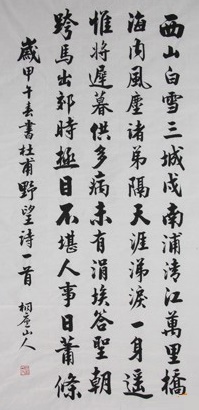 西山白雪三城戍南浦清江萬里橋
海内風塵諸弟隔天涯涕淚一身遥
惟將遲暮供多病未有涓埃答聖朝
跨馬出郊時極目不堪人事日蕭條
歲甲午春書杜甫野望詩一首
桐山人